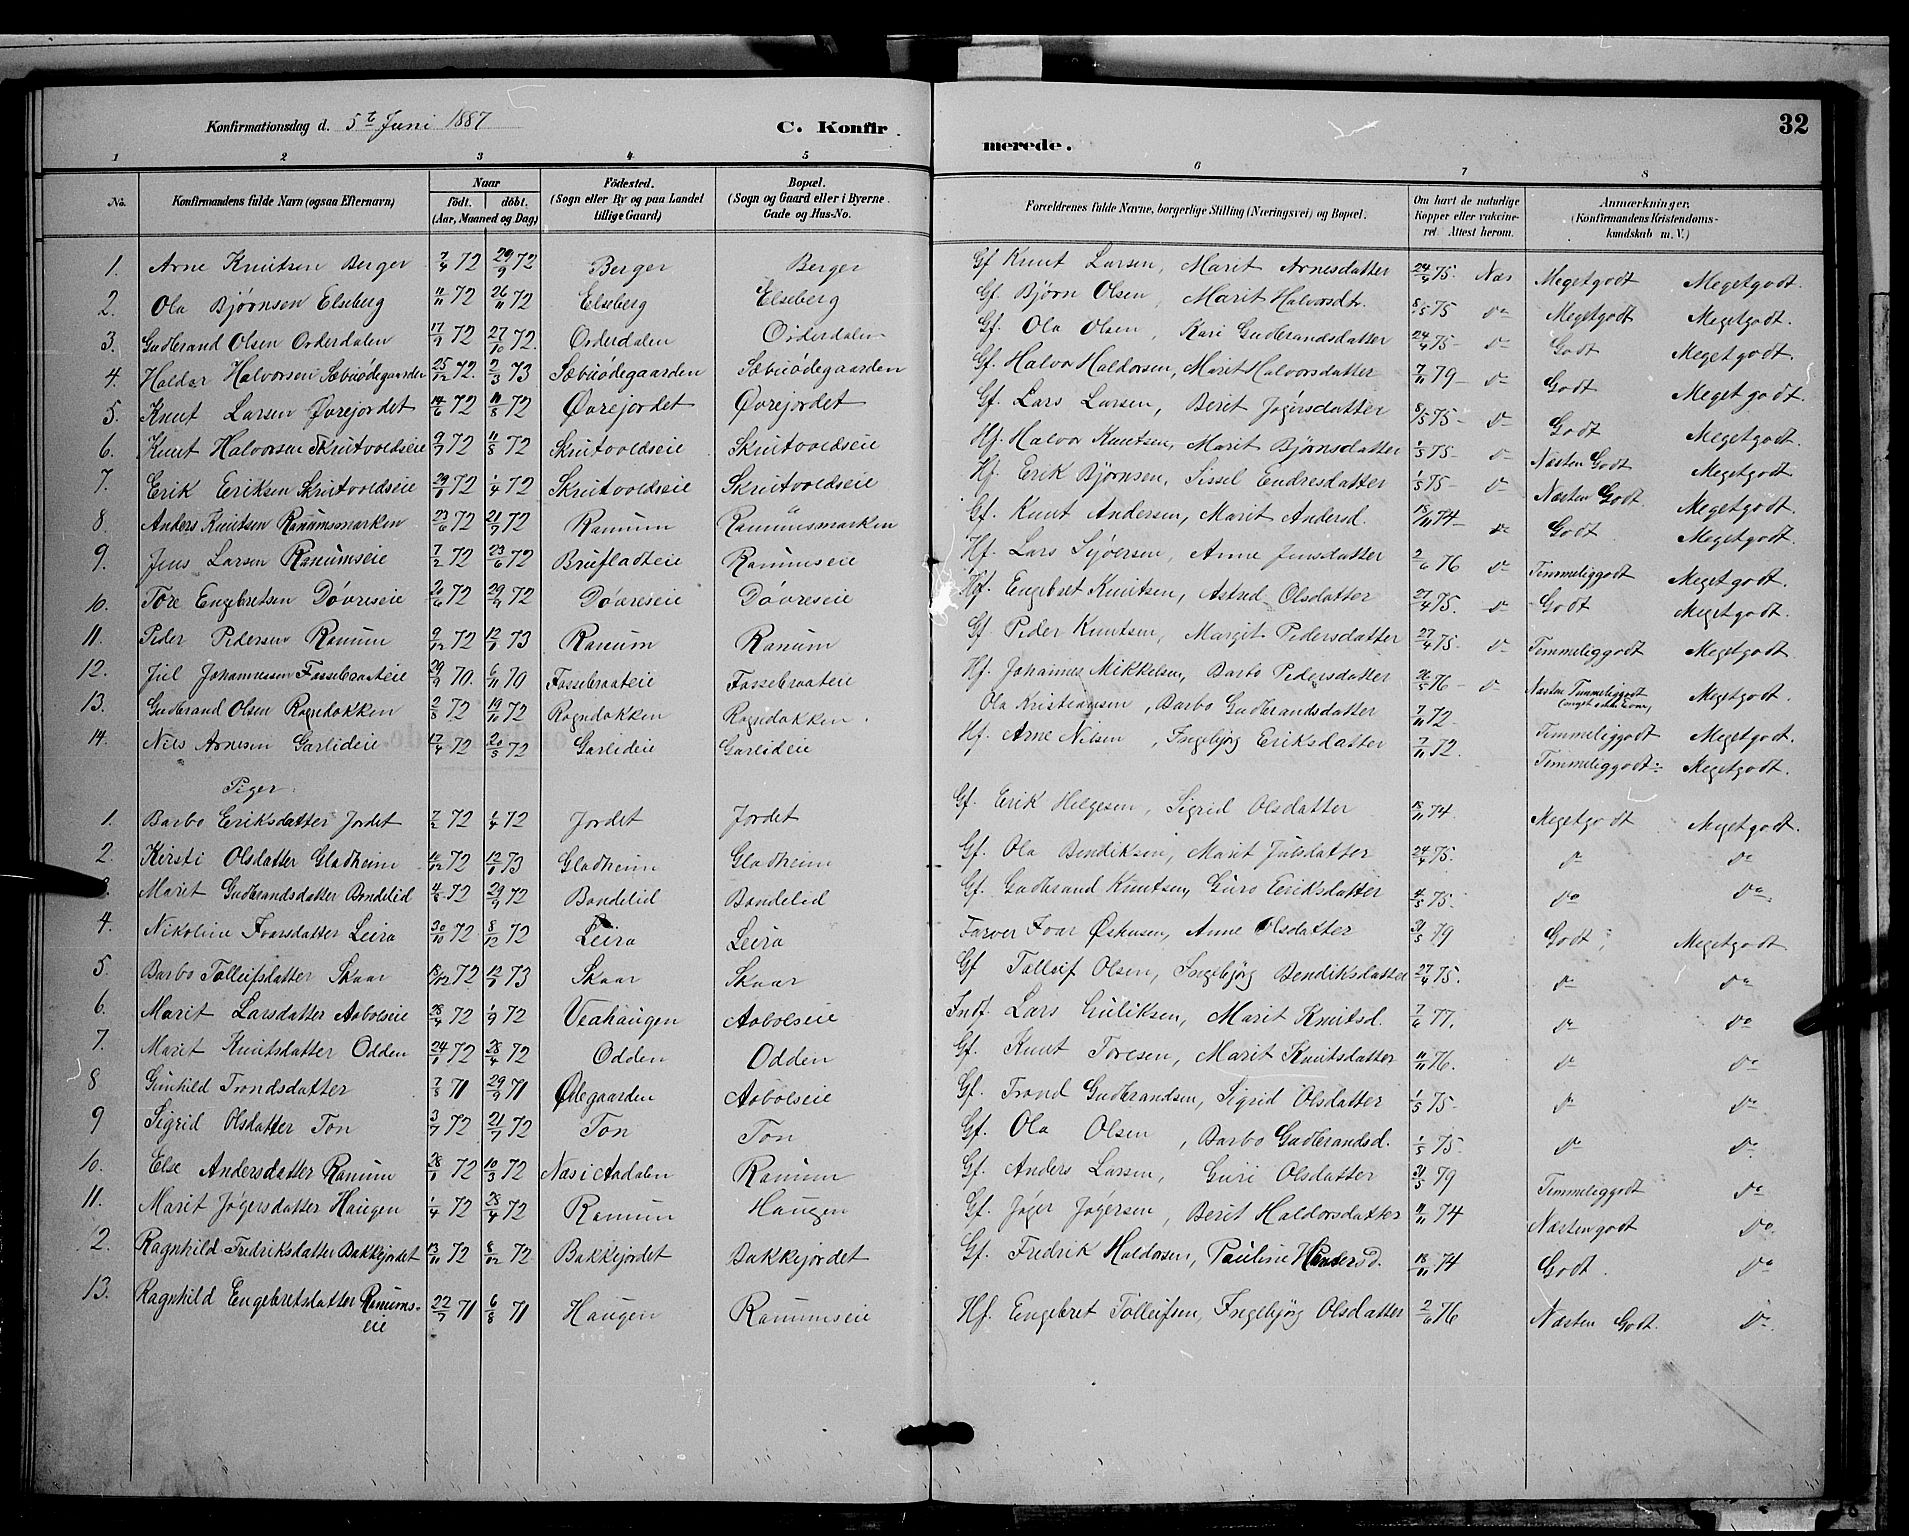 Konfirmationsdag d. 5te Juni 1887
C. Konfirmerede.
32
1 2 3 4 5 6 7 8
No. Konfirmandens fulde Navn (ogsaa Efternavn) Naar födt. döbt. (Aar, Maaned og Dag) Födested. (Sogn eller By og paa Landet tillige Gaard) Bopæl. (Sogn og Gaard eller i Byerne Gade og Hus-No. Forældrenes fulde Navne, borgerlige Stilling (Næringsvei) og Bopæl. Om havt de naturlige Kopper eller vakcineret. Attest herom. Anmærkninger. (Konfirmandens Kristendomskundskab m. V.)
1. Arne Knutsen Berger 7/4 72 29/9 72 Berger Berger Gf Knut Larsen, Marit Arnesdatter 24/4 75. Næs Megetgodt Megetgodt.
2. Ola Bjørnsen Elseberg 11/11 72 26/11 72 Elseberg Elseberg Gf. Bjørn Olsen, Marit Halvorsdtr. 8/5 75 do Megetgodt Megetgodt.
3. Gudbrand Olsen Orderdalen 17/9 72 27/10 72. Orderdalen Orderdalen Gf. Ola Olsen, Kari Gudbrandsdatter 24/4 75- do Godt Megetgodt.
4. Haldor Halvorsen Sæbuødegaarden 25/12 72. 2/3 73 Sæbuødegaarden Sæbuødegaarden Gf. Halvor Haldorsen, Marit Halvorsdatter 7/11 79- do Godt Megetgodt.
5. Knut Larsen Øvrejordet 14/6 72 11/8 72 Øvrejordet Øvrejordet Gf. Lars Larsen, Berit Jøgersdatter 8/5 75- do Godt Megetgodt.
6. Knut Halvorsen Skrutvoldseie 9/7 72 11/8 72 Skrutvoldseie Skrutvoldseie Hf. Halvor Knutsen, Marit Bjørnsdatter 1/5 75- do Næsten Godt Megetgodt.
7. Erik Eriksen Skrutvoldseie 29/1 72 1/4 72 Skrutvoldseie Skrutvoldseie Hf. Erik Bjørnsen, Sissel Endresdatter 1/5 75- do Næsten Godt. Megetgodt.
8. Anders Knutsen Ranumsmarken 23/6 72 21/7 72 Ranum Ranumsmarken Gf. Knut Andersen, Marit Andersd. 18/11 74- do Godt Megetgodt.
9. Jens Larsen Ranumseie 7/2 72 23/6 72 Brufladteie Ranumseie Hf. Lars Sjøersen, Anne Jensdatter 2/6 76 do Temmeliggodt Megetgodt.
10. Tore Engebretsen Dövreseie 20/6 72 29/9 72 Dövreseie Dövreseie Hf. Engebret Knutsen, Astrid Olsdatter 27/4 75. do Godt Megetgodt.
11. Peder Pedersen Ranum 9/12 72 12/1 73 Ranum Ranum Gf. Peder Knutsen, Margit Pedersdatter 27/4 75. do Temmeliggodt Megetgodt.
12. Juel Johannessen Fossebraateie 29/9 70. 6/11 70 Fossebraateie Fossebraateie Hf. Johannes Mikkelsen, Barbo Pedersdatter 26/5 76- do Næsten Temmeliggodt Megetgodt.
13. Gudbrand Olsen Rogndokken 2/8 72 19/11 72 Rogndokken Rogndokken. Ola Kristiansen, Barbo Gudbrandsdatter 7/11 72- Temmeliggodt Megetgodt.
14. Nils Arnesen Garlideie 17/4 72 20/5 72 Garlideie Garlideie Hf. Arne Nilsen, Ingebjög Eriksdatter 7/11 72. Temmeliggodt Megetgodt.
Piger.
1. Barbo Eriksdatter Jordet 7/2 72 1/4 72 Jordet Jordet Gf. Erik Helgesen, Sigrid Olsdatter 18/11 74. Megetgodt Megetgodt.
2. Kirsti Olsdatter Gladheim 11/12 72 12/1 73 Gladheim Gladheim Gf. Ola Bendiksen, Marit Julsdatter 24/4 75. do do
3. Marit Gudbrandsdatter Bondelid 4/8 72 29/9 72 Bondelid Bondelid Gf. Gudbrand Knutsen, Guro Eriksdatter 4/5 75. do do.
4. Nikoline Ivarsdatter Leira 30/10 72 8/12 72 Leira Leira Farver Ivar Øshusen, Anne Olsdatter 31/5 79 Godt Megetgodt
5. Barbo Tolleifsdatter Skaar 15/12 72 12/1 73 Skaar Skaar Gf Tolleif Olsen, Ingebjög Bendiksdatter 27/4 75. do do
6. Marit Larsdatter Aabolseie 28/4 72 1/9 72 Veahaugen Aabolseie Indf. Lars Guliksen, Marit Knutsd. 7/6 77. do do
7. Marit Knutsdatter Odden 24/1 72 28/4 72 Odden Odden Gf. Knut Toresen, Marit Knutsdatter 11/11 76. do do
8 Gunhild Trondsdatter 7/8 71 29/9 71 Ødegaarden Aabolseie Gf. Trond Gudbrandsen, Sigrid Olsdatter 1/5 75- do do
9 Sigrid Olsdatter Ton 3/7 72 21/7 72 Ton Ton Gf. Ola Olsen, Barbo Gudbrandsd. 1/5 75. do do
10. Else Andersdatter Ranum 28/1 72 10/3 72 Næs i Aadalen Ranum Gf. Anders Larsen, Guri Olsdatter 31/5 79 Temmeliggodt do
11. Marit Jøgersdatter Haugen 1/4 72 28/4 72 Ranum Haugen Gf. Jøger Jøgersen, Berit Haldorsdatter 11/11 74 Næstengodt do
12. Ragnhild Fredriksdatter Bakkejordet 13/11 72 8/12 72 Bakkejordet Bakkejordet Gf. Fredrik Haldorsen, Pauline 18/11 74 Godt. do
13. Ragnhild Engebretsdatter Ranumseie 22/7 71 6/8 71 Haugen Ranumseie Hf. Engebret Tolleifsen, Ingebjög Olsdatter 2/6 76 Næsten Godt. do.